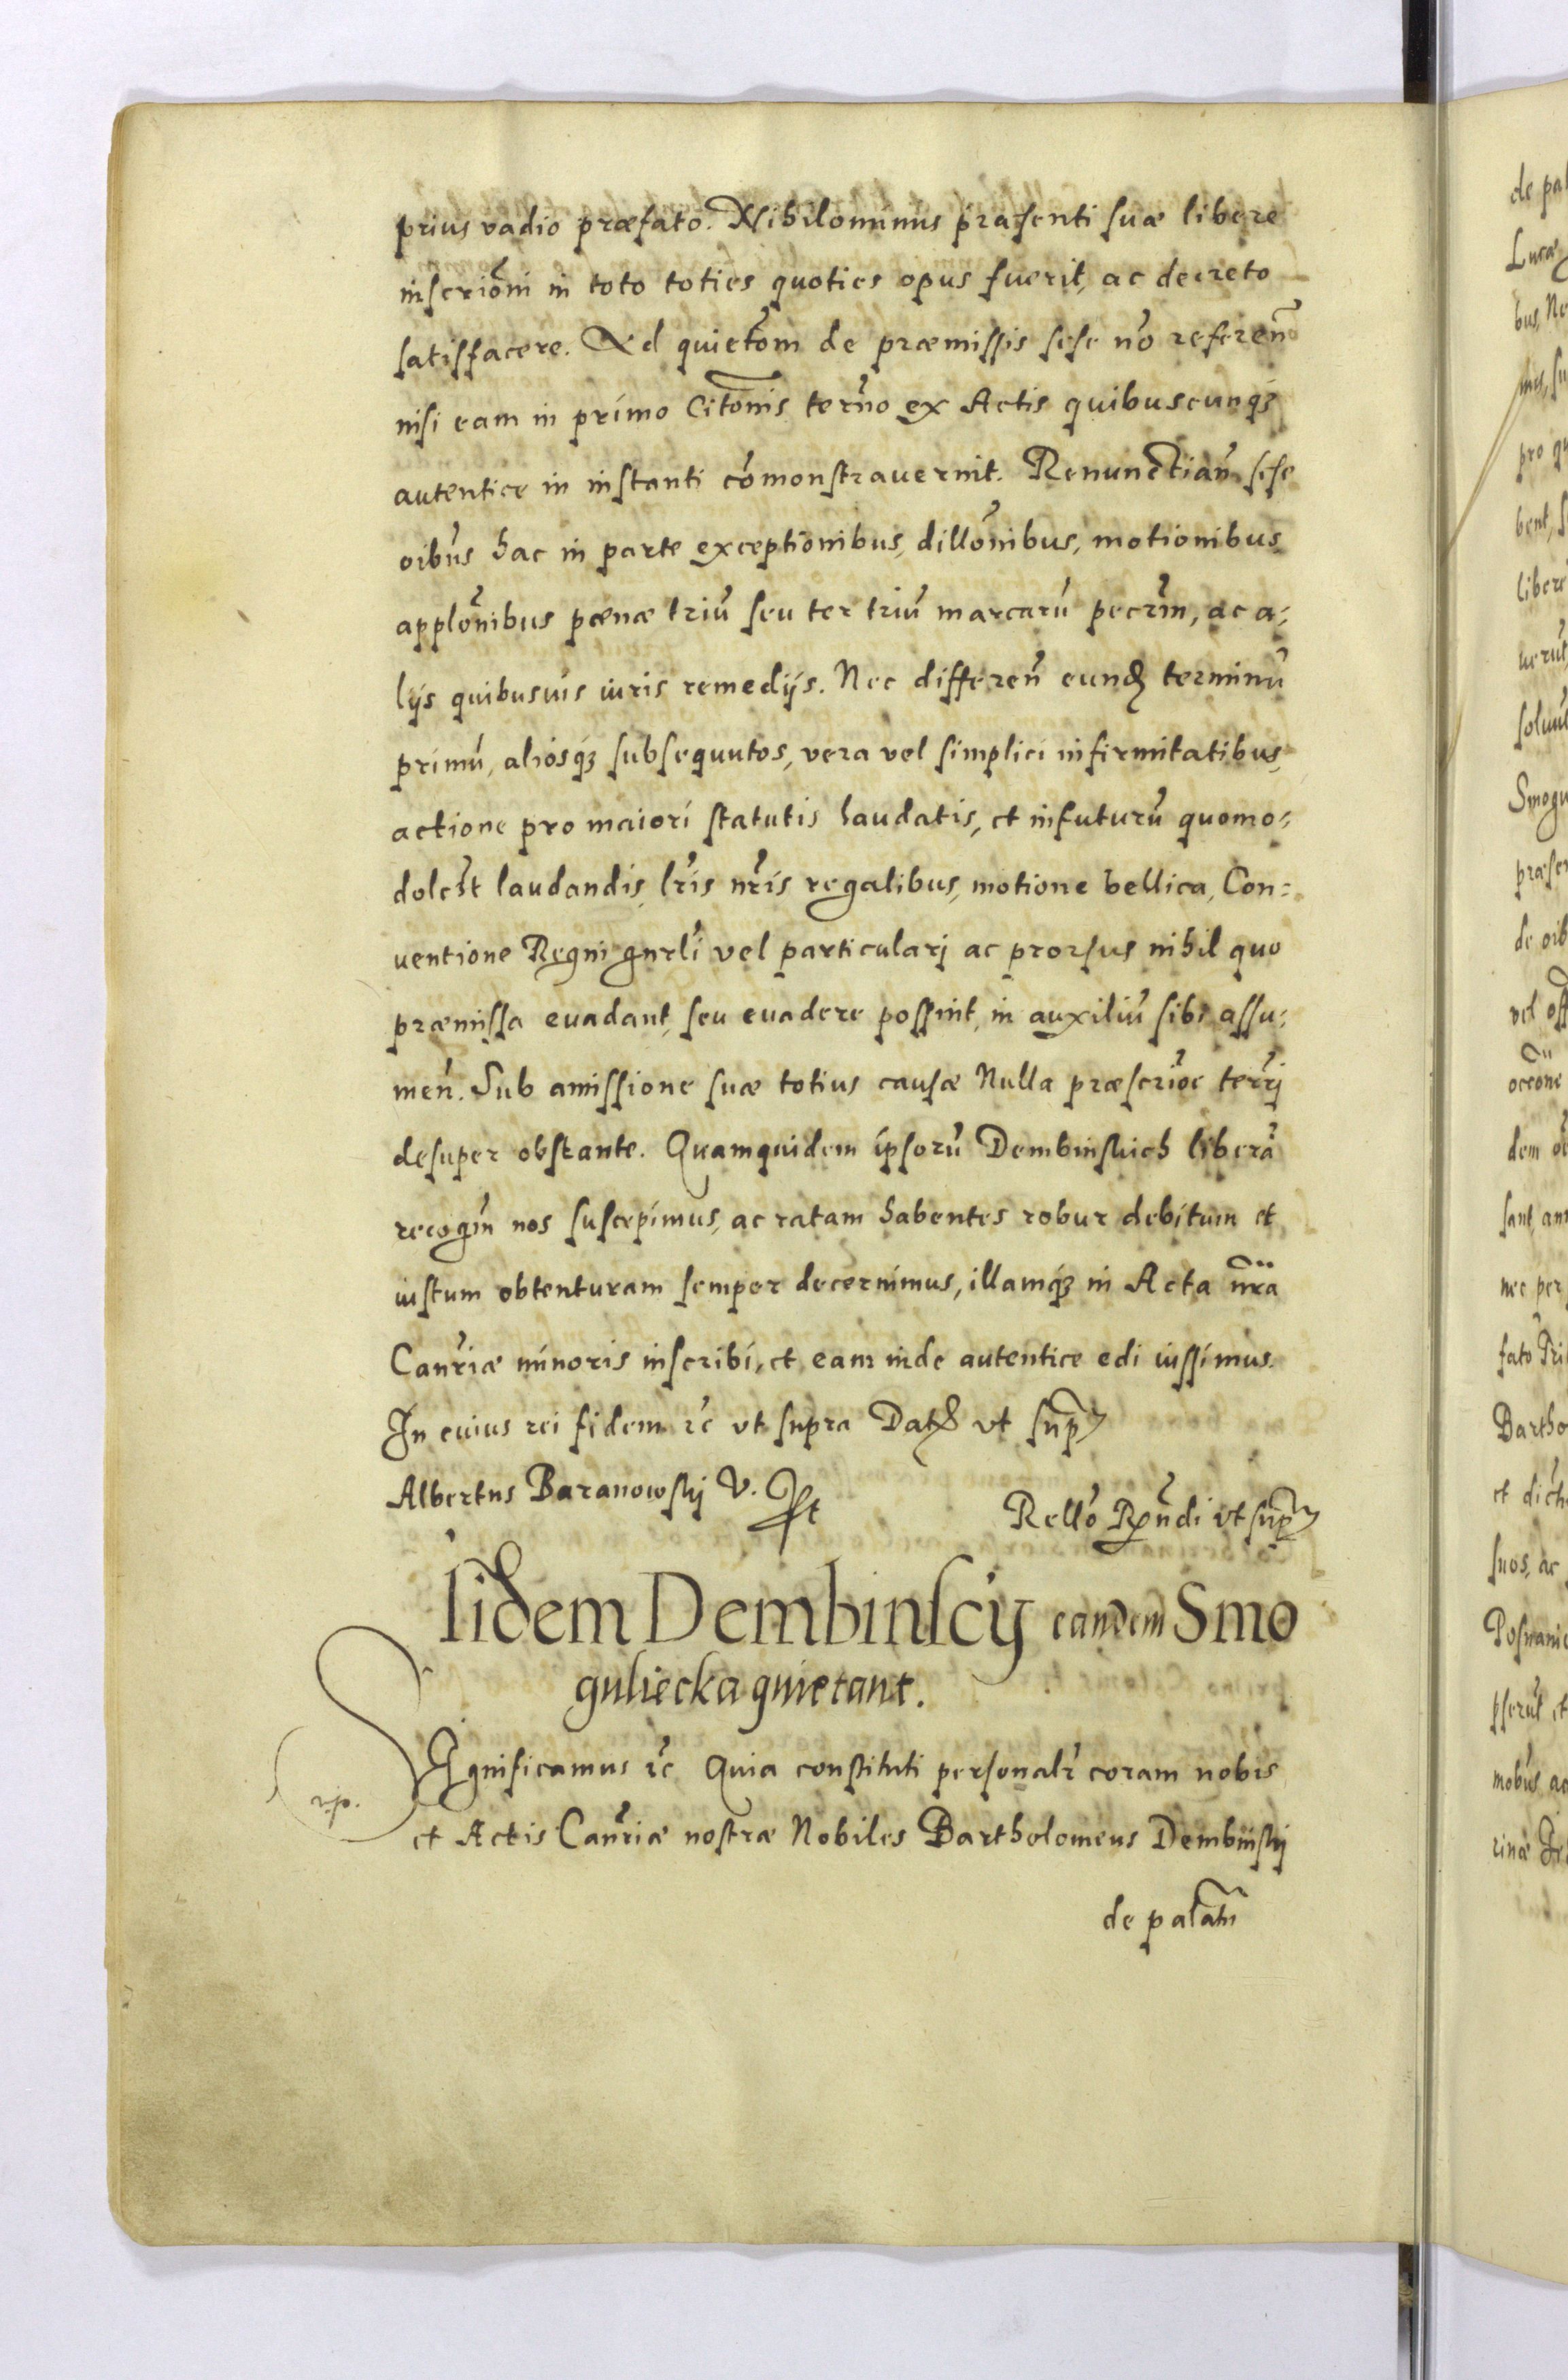 prius vadio præfato. Nihilominus præsenti suæ liberæ
inscriõni in toto toties quoties opus fuerit, ac decreto
satisfacere. Ad quietõm de præmissis sese nõ referen̄
nisi eam in primo Citõnis terño ex Actis quibuscunqȝ
autentice in instanti cõmonstraverint. Renunctian̄ sese
oibus hac in parte exceptionibus, dillõnibus, motionibus
applõnibus pœnæ triũ seu ter triũ marcarũ pecrm̄, ac a-
lijs quibusuis iuris remedijs. Nec differen̄ eund terminũ
primũ, aliosqȝ subsequutos, vera vel simplici infirmitatibus,
actione pro maiori statutis laudatis, et infuturũ quomo-
dolct laudandis, lris nris regalibus, motione bellica, Con-
uentione Regni gnrli vel particularj ac prorsus nihil quo
præmissa euadant, seu euadere possint, in auxiliũ sibi assu-
men̄. Sub amissione suæ totius causæ Nulla præscrioe terrj
desuper obstante. Quamquidem ipsorũ Dembinskich liberã
recogm̄ nos suscepimus, ac ratam habentes robur debitum et
iustum obtenturam semper decernimus, illamqȝ in Acta nr̄a
Canriæ minoris inscribi, et eam inde autentice edi iussimus.
In cuius rei fidem ꝛc vt supra Dat vt sup
Albertus Baranowskj V.
Rello Rndi vt sup
Iidem Dembinscÿ eandem Smo
guliecka quietant.
Significamus ꝛc Quia constituti personalr coram nobis
r.p.
et Actis Canriæ nostræ Nobiles Bartholomeus Dembinskj
de palatu
de pal
Lucæ
bus, Ne
pro qu
bent,
libere
uerũt
soluũt
Smogu
præsen
de oib
vel off
dem
sant, ann
nec per
fato Pri
Bartho
et dich
suos, ac
Posnanie
pserũt et
mobus ac
rinæ